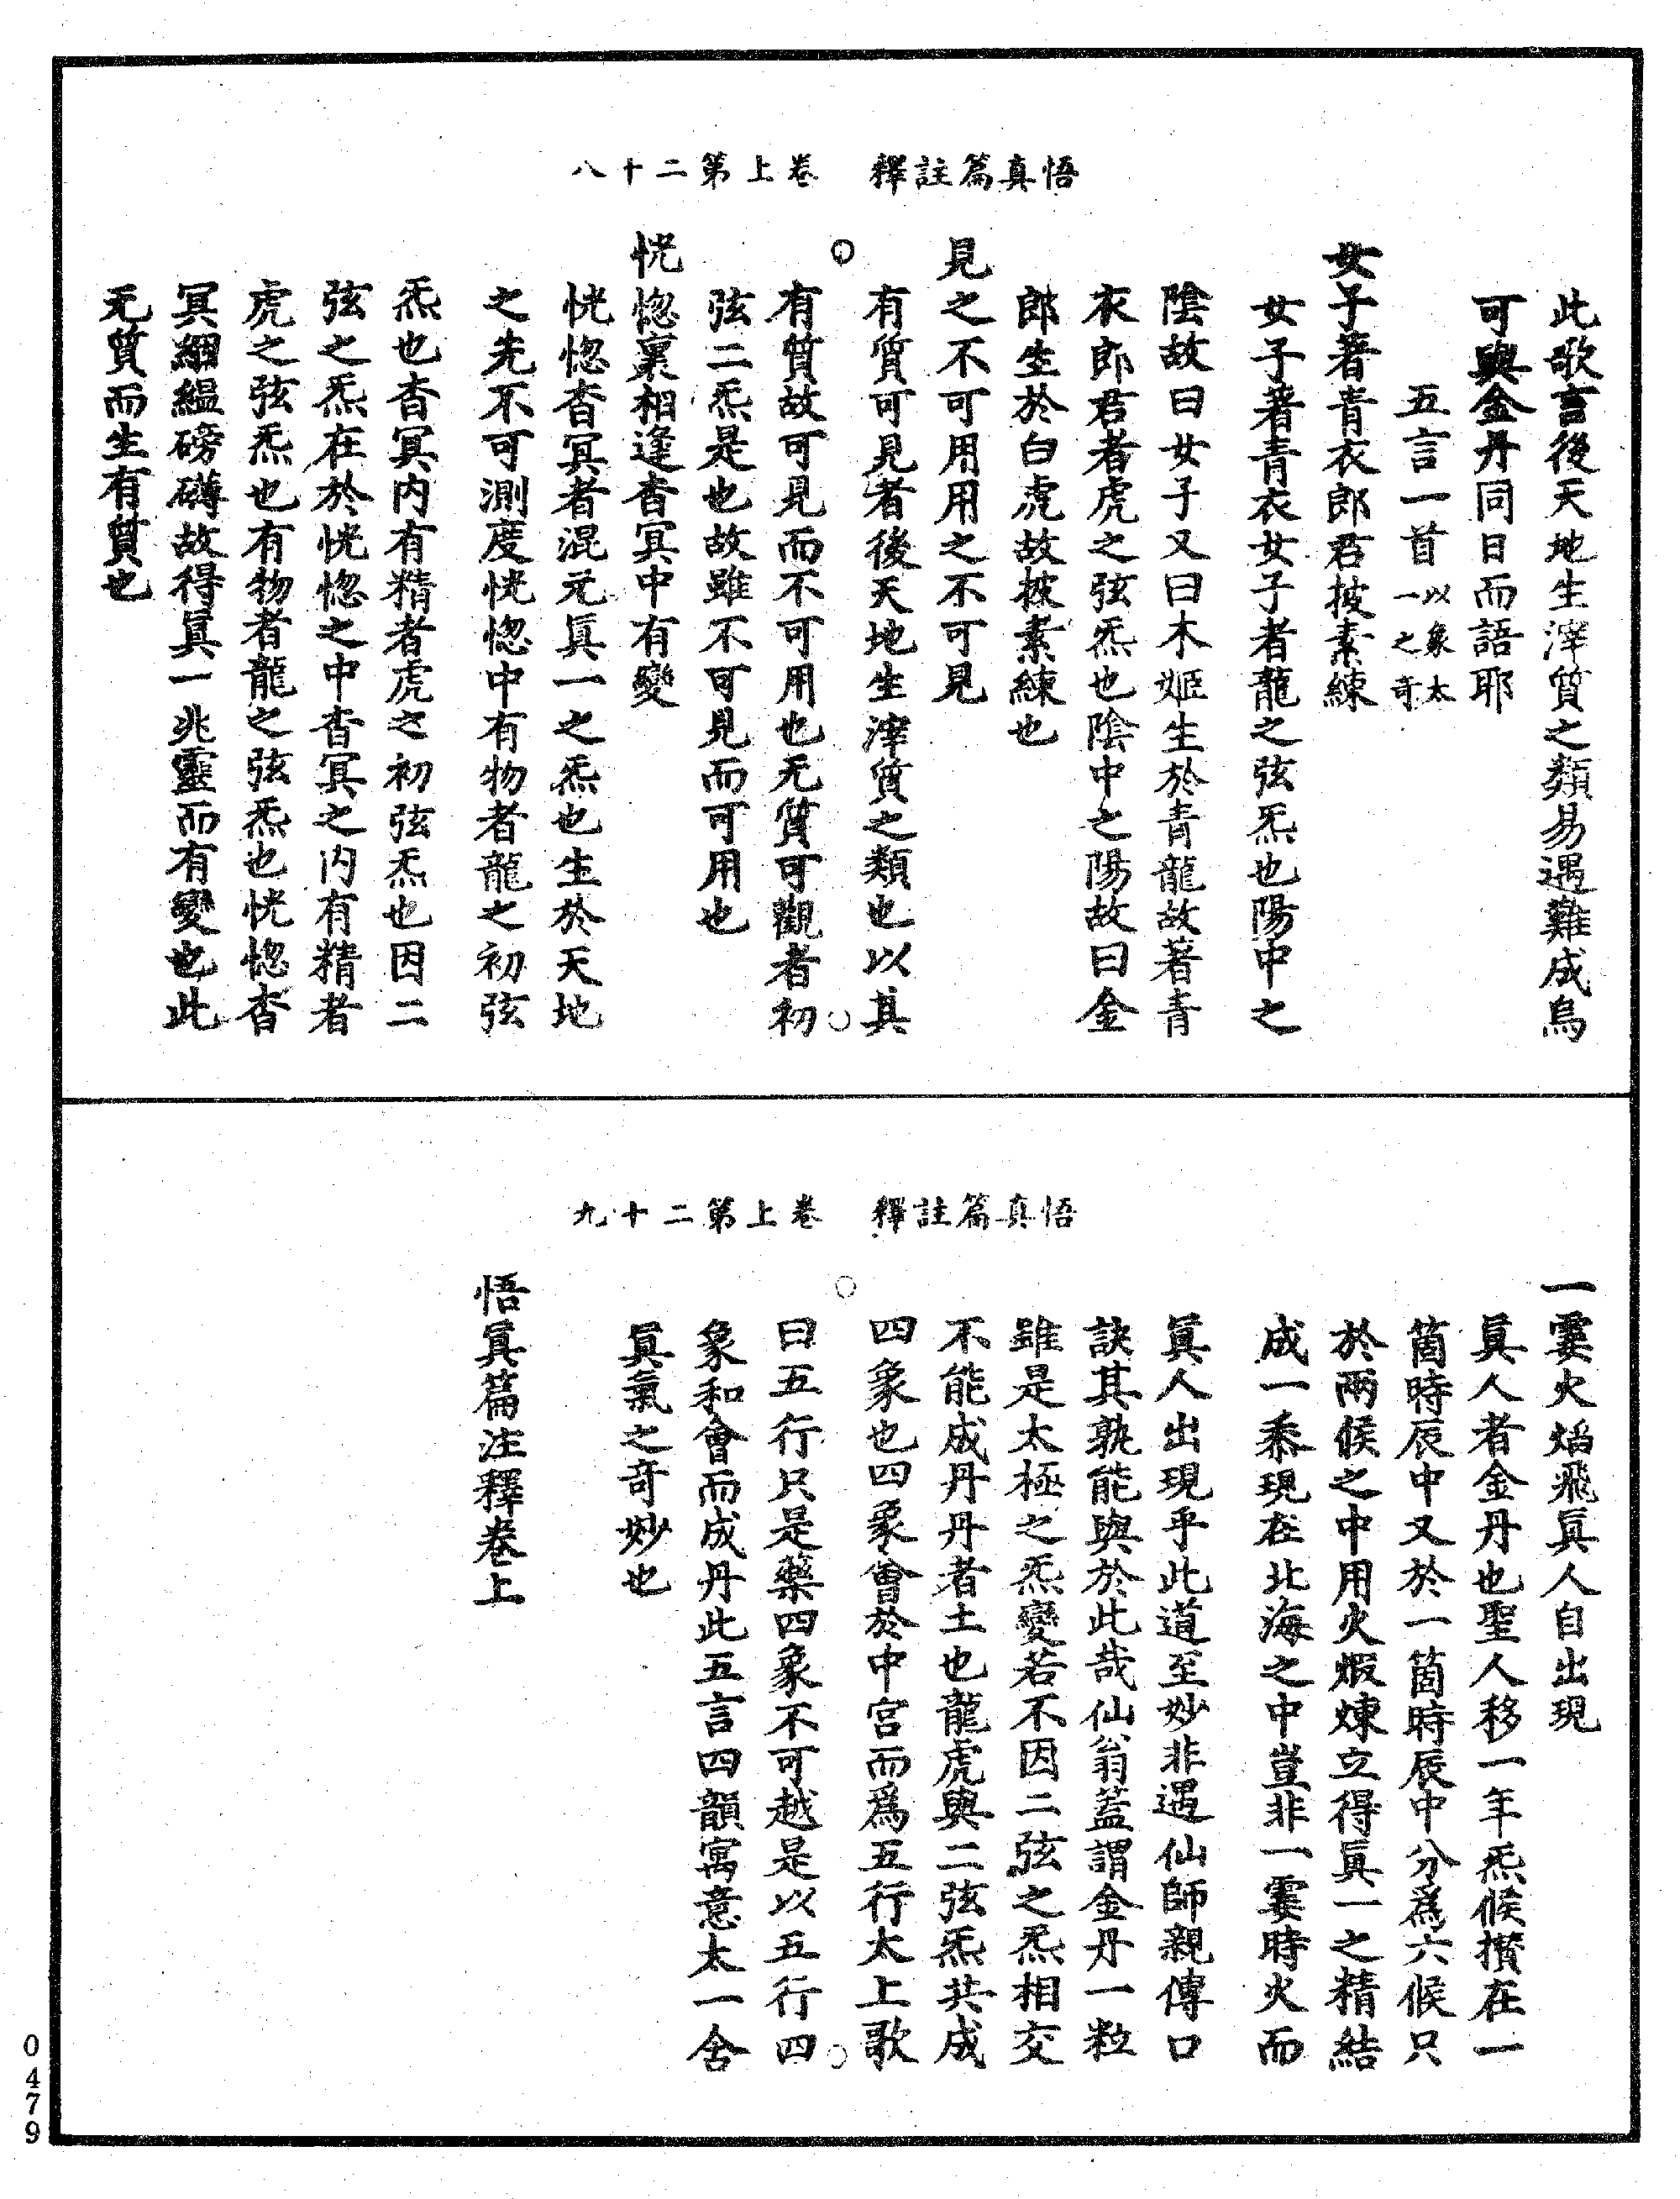 悟真篇註釋　卷上第二十八
此歌言後天地生滓質之類易遇難成烏
可與金丹同日而語耶
五言一首以象太一之奇
女子著青衣郎君披素練
女子著青衣女子者龍之弦炁也陽中之
陰故曰女子又曰木姬生於青龍故著青
衣郎君者虎之弦炁也陰中之陽故曰金
郎生於白虎故披素練也
見之不可用用之不可見
有質可見者後天地生滓質之類也以其
有質故可見而不可用也无質可觀者初
弦二炁是也故雖不可見而可用也
恍惚裏相逢杳冥中有變
恍惚杳冥者混元眞一之炁也生於天地
之先不可測度恍惚中有物者龍之初弦
炁也杳冥內有精者虎之初弦炁也因二
弦之炁在於恍惚之中杳冥之內有精者
虎之弦炁也有物者龍之弦炁也恍惚杳
冥絪縕磅礴故得眞一兆靈而有變也此
无質而生有質也
悟真篇註釋　卷上第二十九
一霎火焰飛眞人自出現
眞人者金丹也聖人移一年炁候攢在一
箇時辰中又於一箇時辰中分爲六候只
於兩候之中用火煆煉立得眞一之精結
成一黍現在北海之中豈非一霎時火而
眞人出現乎此道至妙非遇仙師親傳口
訣其孰能與於此哉仙翁蓋謂金丹一粒
雖是太極之炁變若不因二弦之炁相交
不能成丹丹者土也龍虎與二弦炁共成
四象也四象會於中宮而爲五行太上歌
曰五行只是藥四象不可越是以五行四
象和會而成丹此五言四韻寓意太一含
眞氣之奇妙也
悟眞篇注釋卷上
0479